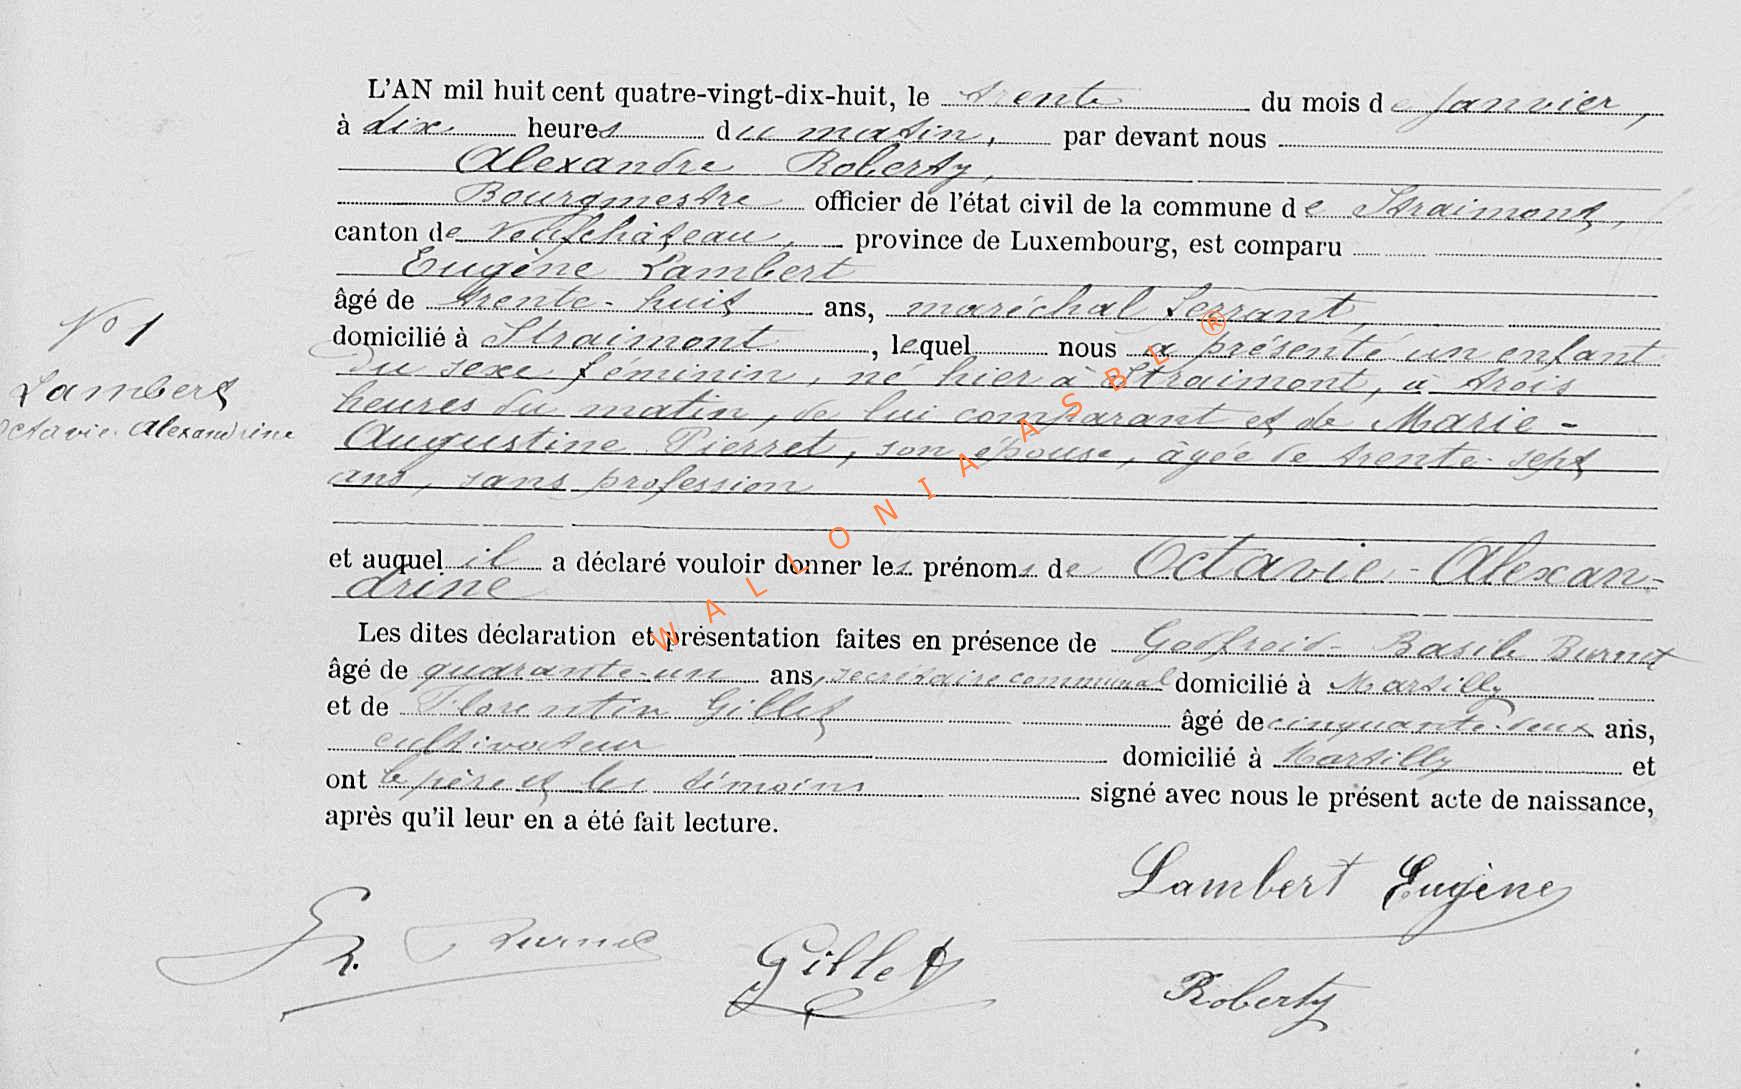 L'AN mil huit cent quatre-vingt-dix-huit, le trente du mois de Janvier,
à dix heures du matin, par devant nous
Alexandre Roberty,
Bourgmestre officier de l'état civil de la commune de Straimont,
canton de Neufchâteau, province de Luxembourg, est comparu
Eugène Lambert
âgé de trente-huit ans, maréchal ferrant,
domicilié à Straimont, lequel nous a présenté un enfant
du sexe féminin, né hier à Straimont, à trois
heures du matin, de lui comparant et de Marie-
Augustine Pierret, son épouse, âgée de trente-sept
ans, sans profession
et auquel il a déclaré vouloir donner les prénoms de Octavie-Alexan-
drine
Les dites déclaration et présentation faites en présence de Godfroid-Basile Burnet
âgé de quarante-un ans, secrétaire communal domicilié à Martilly
et de Florentin Gillet âgé de cinquante-deux ans,
cultivateur domicilié à Martilly et
ont le père et les témoins signé avec nous le présent acte de naissance,
après qu'il leur en a été fait lecture.
No 1
Lambert
Octavie Alexandrine
Lambert Eugène
Burnet
Gillet
Roberty
WALLONIA ASBL ®